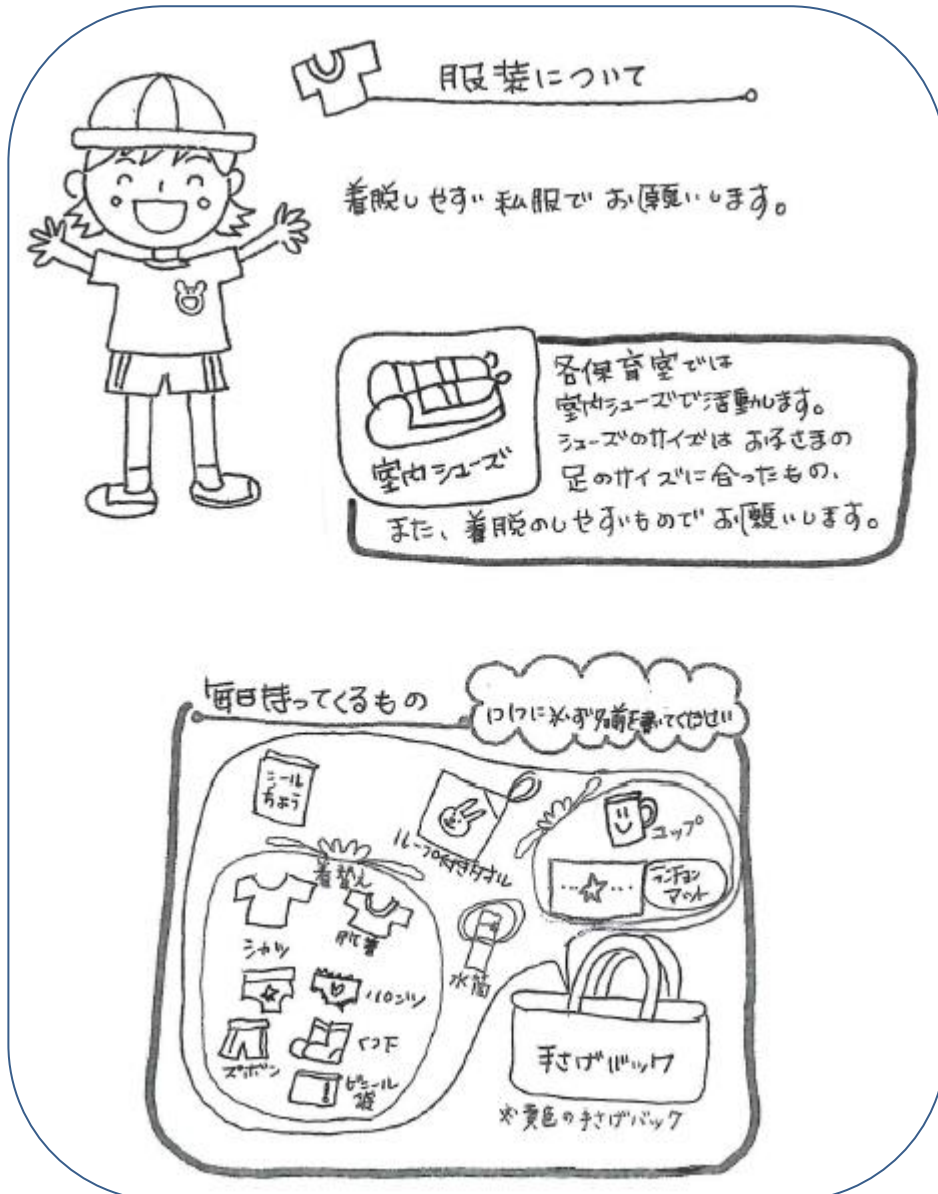 服装について
着脱しやすい私服でお願いします。
各保育室では
室内シューズで活動します。
シューズのサイズはお子さまの
足のサイズに合ったもの、
また、着脱のしやすいものでお願いします。
室内シューズ
毎日持ってくるもの
1つ1つに必ず名前を書いてください
シール
ちょう
ループ付きタオル
コップ
ランチョン
マット
着替え
シャツ
肌着
パンツ
ズボン
くつ下
ビニール
袋
水筒
手さげバック
※黄色の手さげバック